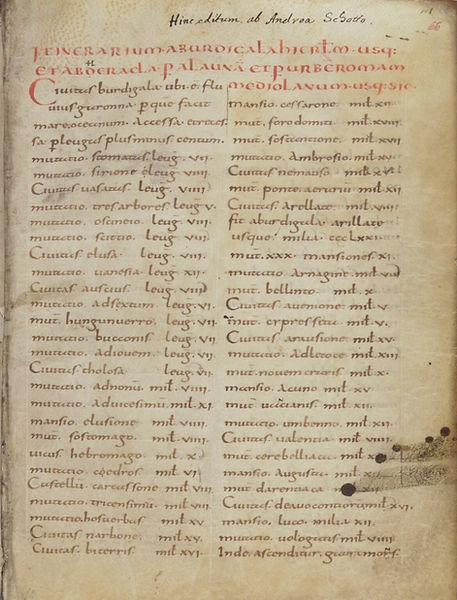 Hinc editum ab Andrea Schotto.
66
ITINERARIUM A BURDIGALA HIERUSALEM USQ:
ET AB HERACLEA P AULONA ET P URBE ROMAM
MEDIOLANUM USQ: SIC
Civitas burdigala ubi ē flu
vius garonna p que facit
mare oceanum accessa et reces
sa p leugas plus minus centum
mutatio stomatas leug. VII.
mutatio sirione leug. VIIII
Civitas vasatas leug. VIIII
mutatio tres arbores leug V.
mutatio oscineio leug. VIII.
mutatio scittio leug. VIII
Civitas elusa leug. VIII
mutatio vanesia leug. XII.
Civitas auscius leug. VIII
mutatio ad sextum leug. VI.
mut hungunverro leug. VII.
mutatio bucconis leug. VII
mutatio ad iovem leug. VII
Civitas tholosa leug. VII
mutatio ad nonum mil. VIIII.
mutatio ad vicesimum mil. XI.
mansio elusione mil. VIIII
mut sostomago mil. VIIII
vicus hebromago mil. X
mutatio chedros mil. VI
Castellu carcassone mil. VIII
mutatio tricensimu mil. VIII
mutatio hosuerbas mil. XV
Civitas narbone mil. XV
Civitas biterris mil. XVI
mansio cessarone mil. XII
mut foro domiti mil. XVIII
mut sostantione mil. XVII
mutatio Ambrosio mil. XV
Civitas nemauso mil.
mut ponte aerariu mil. XII
Civitas arellate mil. VIII
fit a burdigala arillate
usque milia CCCLXXI
mut XXX mansiones XI
mutatio arnagine mil. VIII
mut bellinto mil. X
Civitas avenione mil. V
mut cypresseta mil. V.
Civitas arausione mil. XV
mutatio ad lectoce mil. XIII
mut novem craris mil. X
mansio Acuno mil. XV
mut vancianis mil. XII.
mutatio umbenno mil. XII.
Civitas valentia mil. VIIII
mut cerebelliaca mil. XII
mansio augusta mil. X
mut darentiaca mil. XII
Civitas dea vocontiorum mil. XVI
mansio luco milia XII
mutatio vologatis mil. VIIII
Inde ascenditur gaura mons